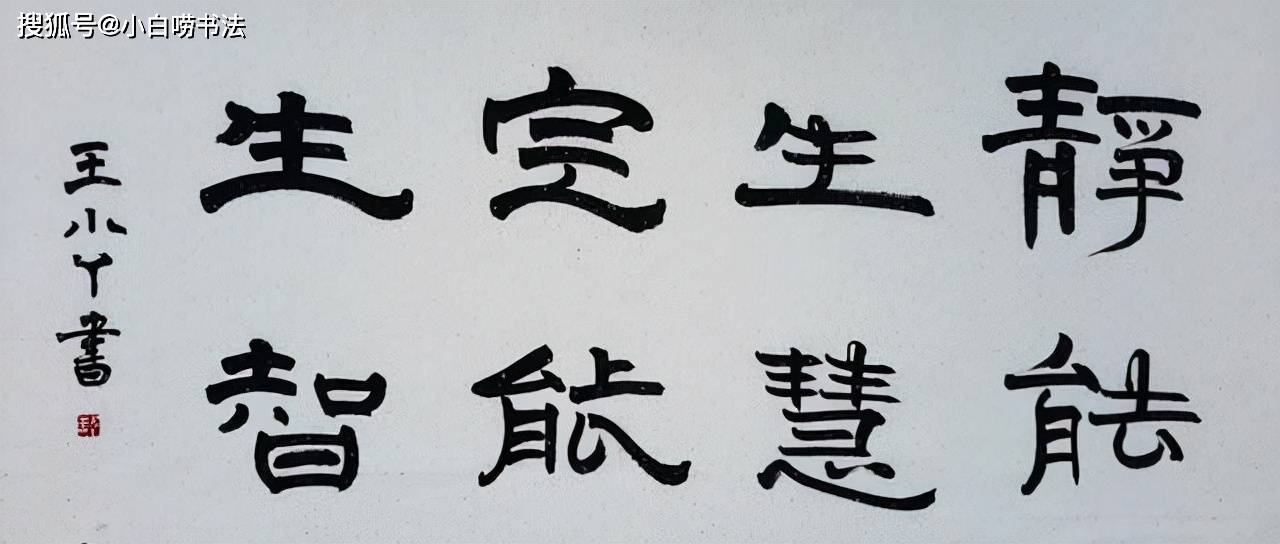 搜狐号@小白唠书法
靜能
生慧
定能
生智
王小丫書